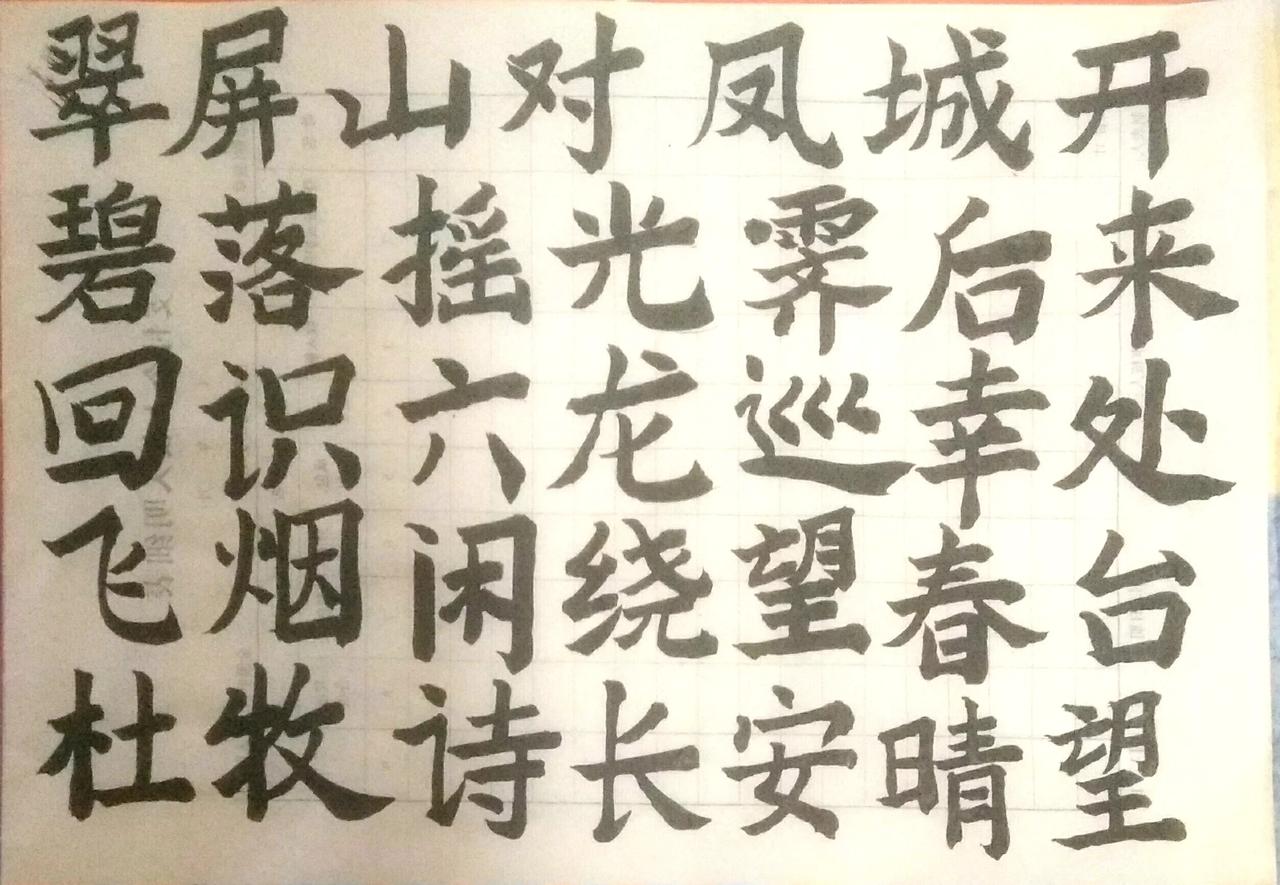 翠屏山对凤城开
碧落摇光霁后来
回识六龙巡幸处
飞烟闲绕望春台
杜牧诗长安晴望